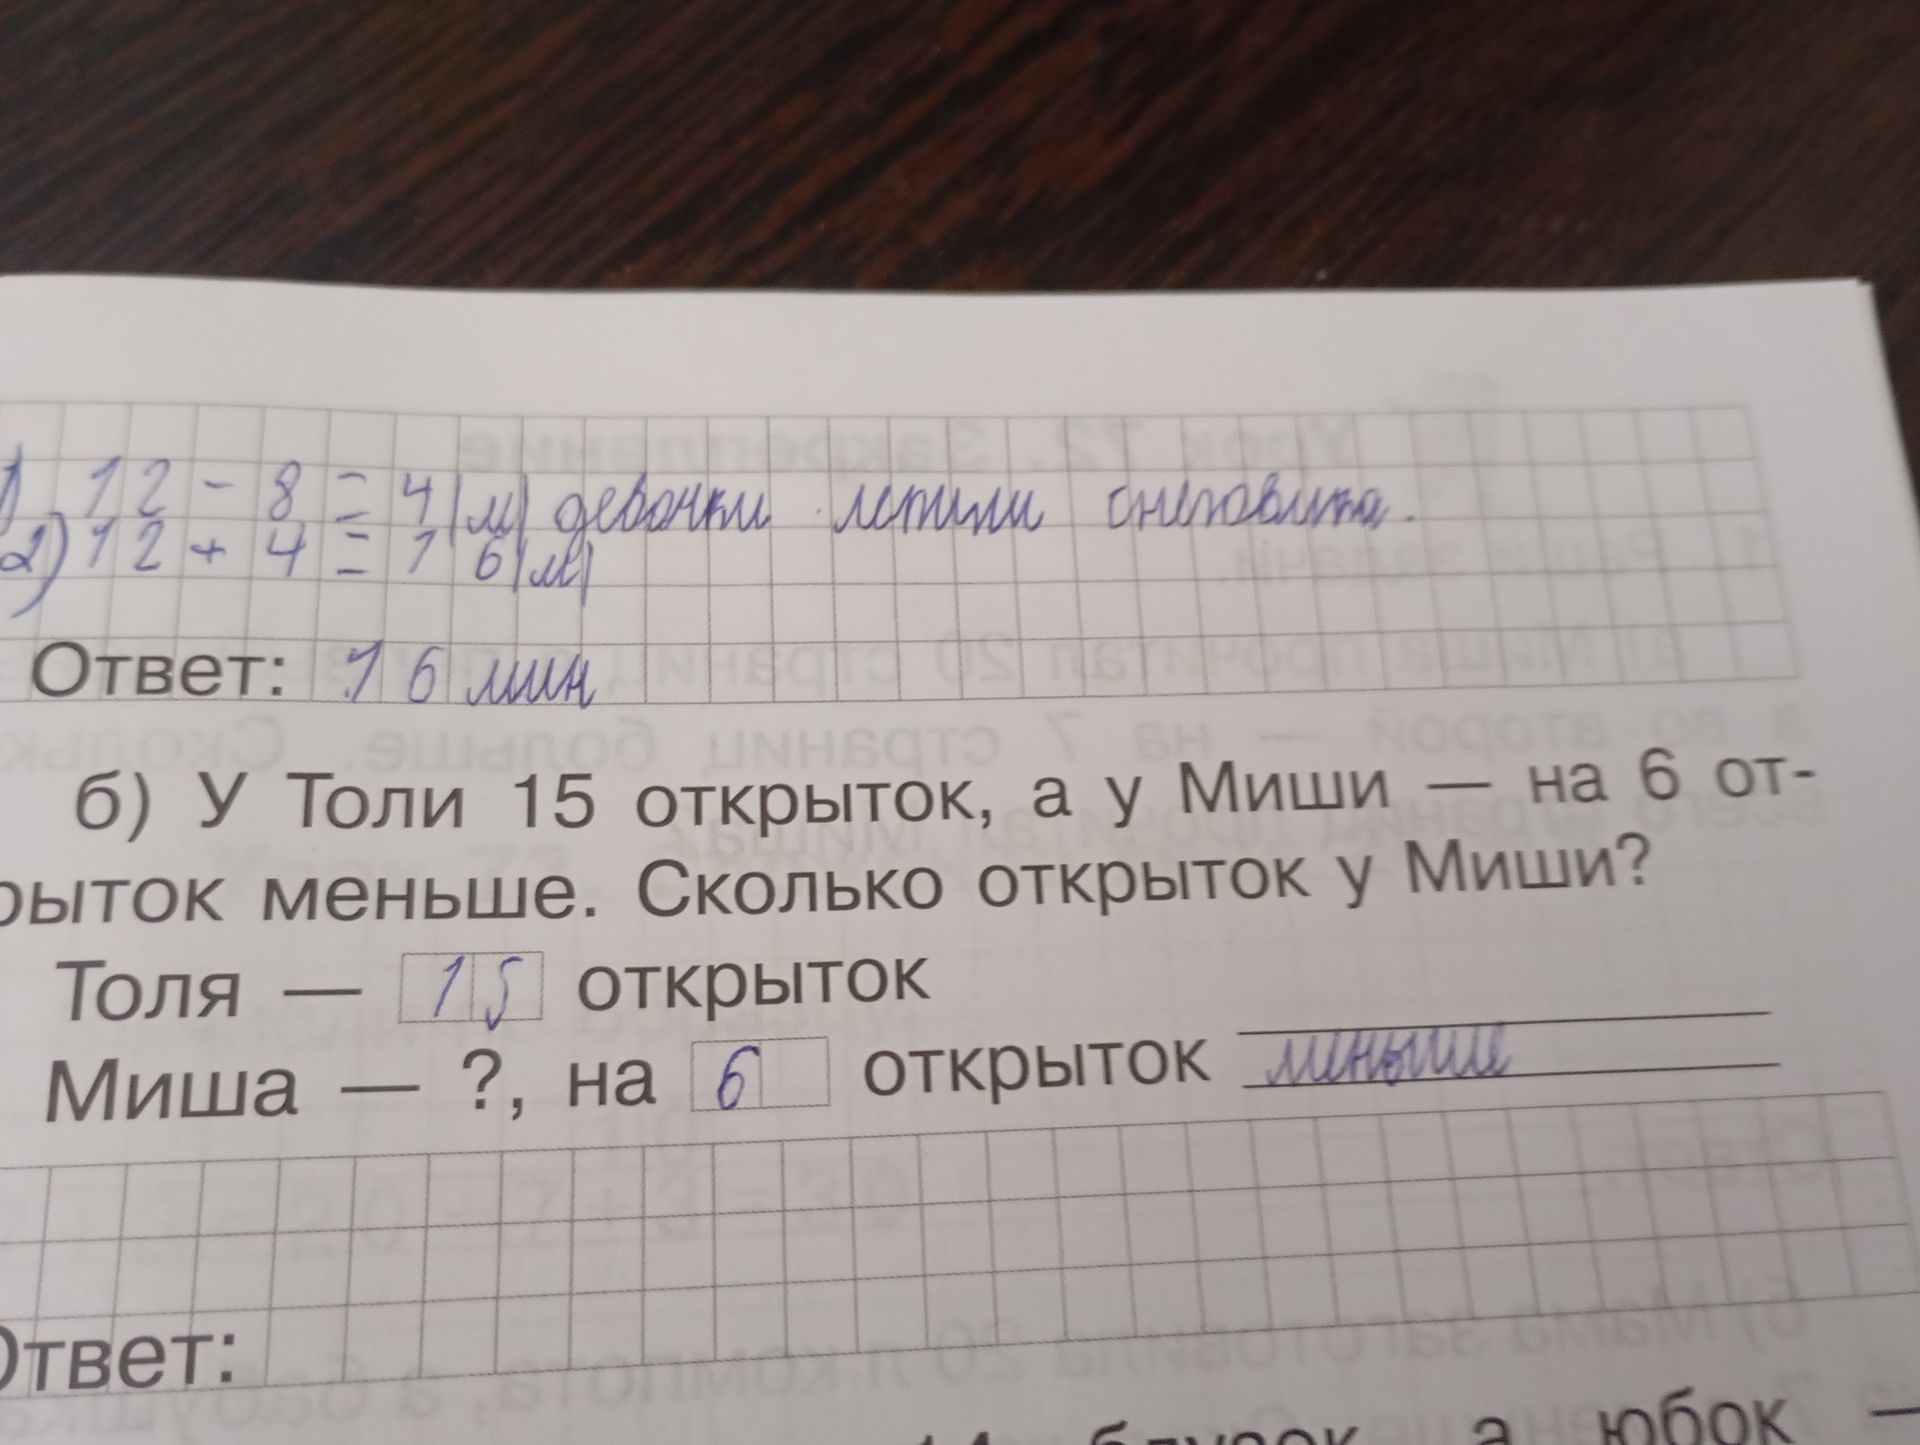 1) 12 - 8 = 4 (м) девочки лепили снеговика.
2) 12 + 4 = 16 (м)
Ответ: 16 мин
б) У Толи 15 открыток, а у Миши — на 6 от-
рыток меньше. Сколько открыток у Миши?
Толя — 15 открыток
Миша — ?, на 6 открыток меньше
Ответ:
а юбок —